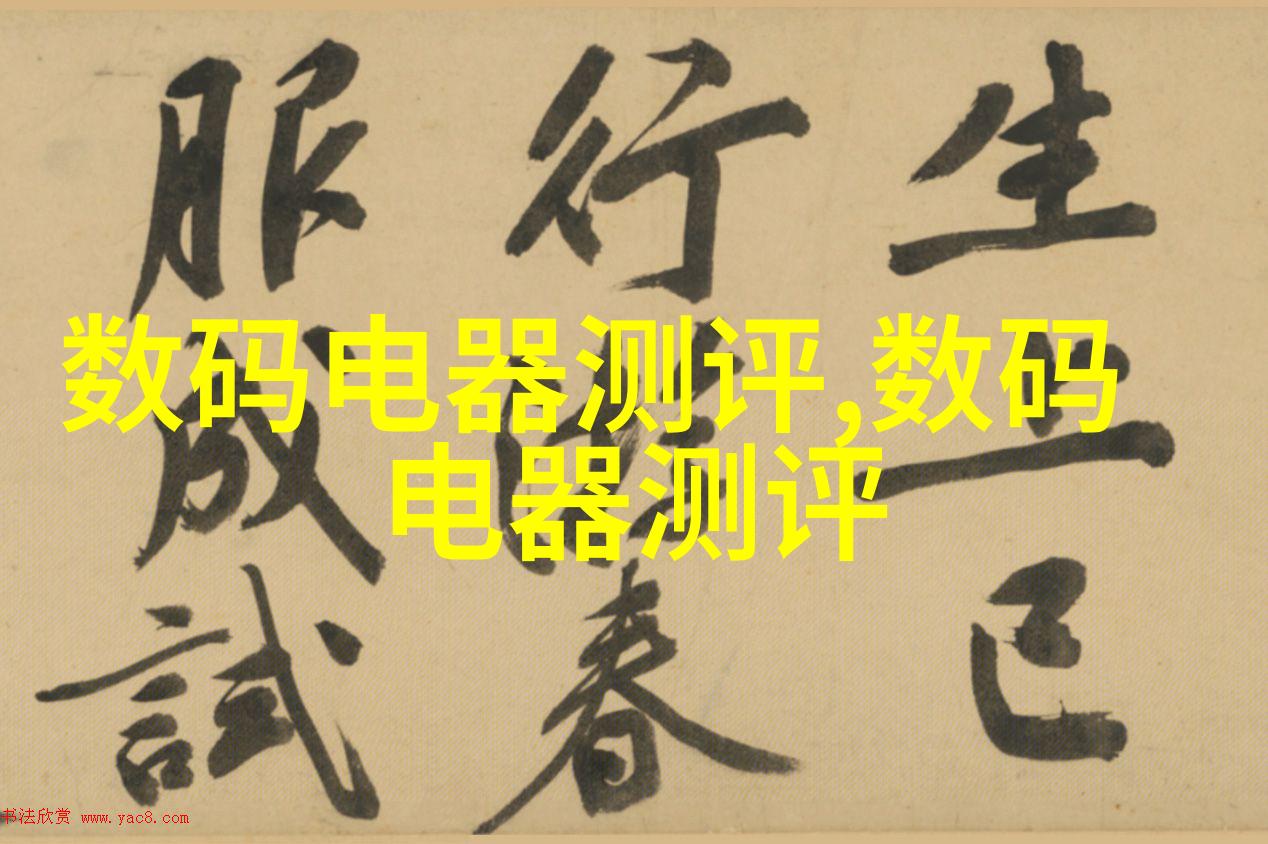 生 已
行 春
服成試
数码电器测评,数码
电器测评
书法欣赏 www.yac8.com